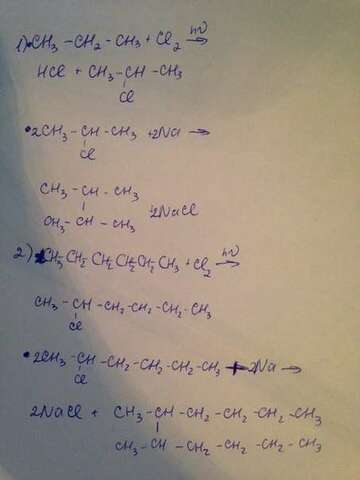 1) •CH₃ – CH₂ – CH₃ + Cl₂ hν→
HCl + CH₃ – CH – CH₃
Cl
•2CH₃ – CH – CH₃ +2Na →
Cl
CH₃ – CH – CH₃
CH₃ – CH – CH₃ 2NaCl
2) CH₃–CH₂ CH₂ CH₂ CH₂–CH₃ + Cl₂ hν→
CH₃ – CH – CH₂ – CH₂ – CH₂ – CH₃
Cl
•2CH₃ – CH – CH₂ – CH₂ – CH₂ – CH₃ + 2Na →
Cl
2NaCl + CH₃ – CH – CH₂ – CH₂ – CH₂ – CH₃
CH₃ – CH – CH₂ – CH₂ – CH₂ – CH₃